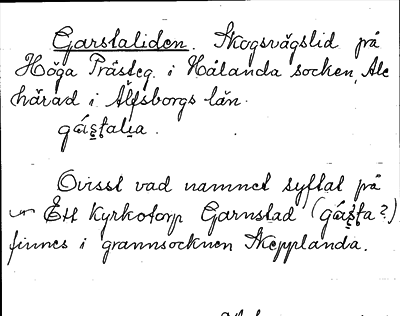 Garstaliden. Skogsvägslid på
Höga Prästeg. i Hålanda socken, Ale
härad i Älfsborgs län.
gáʂʈalıa.
Ovisst vad namnet syftat på
Ett kyrkotorp Garnstad (gáʂʈa?)
finnes i grannsocknen Skepplanda.